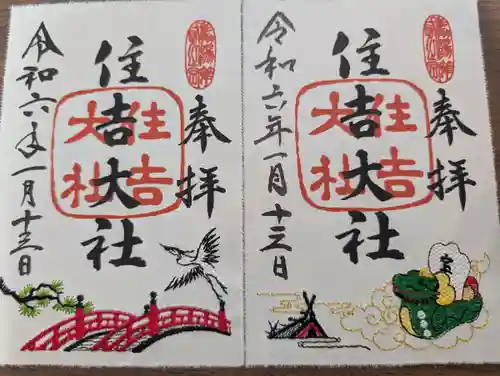 奉拝
住吉大社
住吉
大社
令和六年一月十三日
奉拝
住吉大社
住吉
大社
令和六年一月十三日